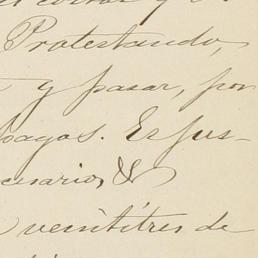 Protestando,
y pasar, por
pagos. Es jus-
cesario, &
veintitres de